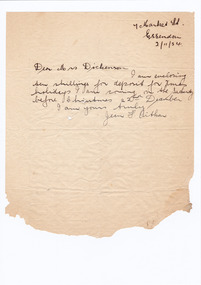 Market St.
Essendon
2/11/34
Dear Miss Dickenson
I am enclosing
ten shillings for deposit for Xmas
holidays I am coming on the Saturday
before Christmas 22nd December
I am yours truly
Jean